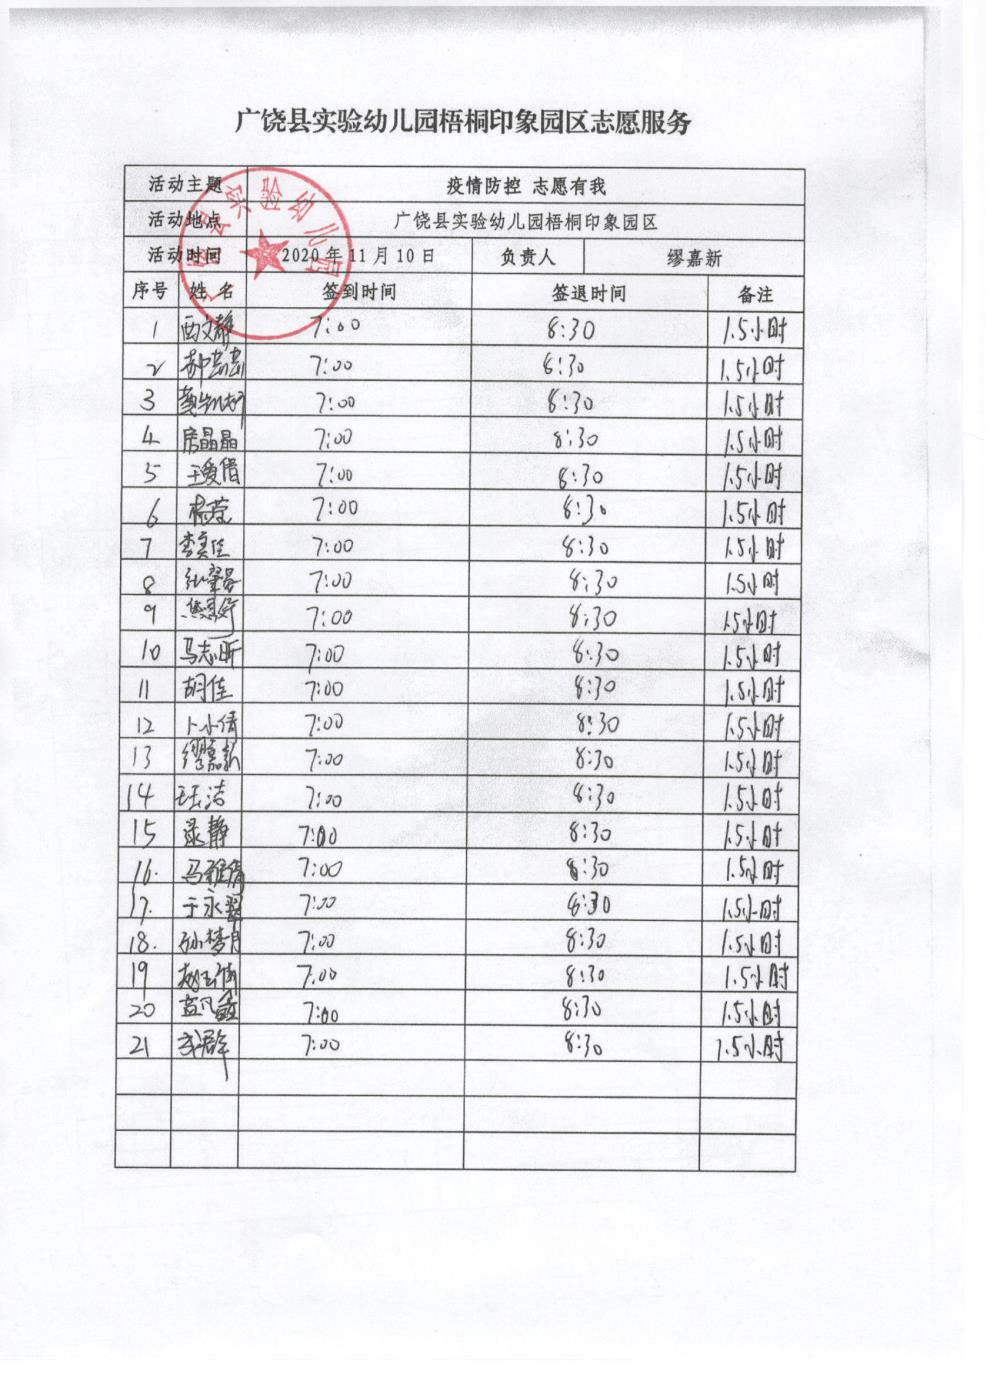 广饶县实验幼儿园梧桐印象园区志愿服务
活动主题 疫情防控 志愿有我
活动地点 广饶县实验幼儿园梧桐印象园区
活动时间 2020年11月10日 负责人 缪嘉新
序号 姓名 签到时间 签退时间 备注
1 西文静 7:00 8:30 1.5小时
2 7:00 8:30 1.5小时
3 7:00 8:30 1.5小时
4 房晶晶 7:00 8:30 1.5小时
5 王爱倩 7:00 8:30 1.5小时
6 杨莹 7:00 8:30 1.5小时
7 李真佳 7:00 8:30 1.5小时
8 7:00 8:30 1.5小时
9 7:00 8:30 1.5小时
10 马志昕 7:00 8:30 1.5小时
11 胡佳 7:00 8:30 1.5小时
12 卜小倩 7:00 8:30 1.5小时
13 缪嘉新 7:00 8:30 1.5小时
14 7:00 8:30 1.5小时
15 逯静 7:00 8:30 1.5小时
16. 马雅倩 7:00 8:30 1.5小时
17. 于永翠 7:00 8:30 1.5小时
18. 孙梦月 7:00 8:30 1.5小时
19 7:00 8:30 1.5小时
20 7:00 8:30 1.5小时
21 7:00 8:30 1.5小时